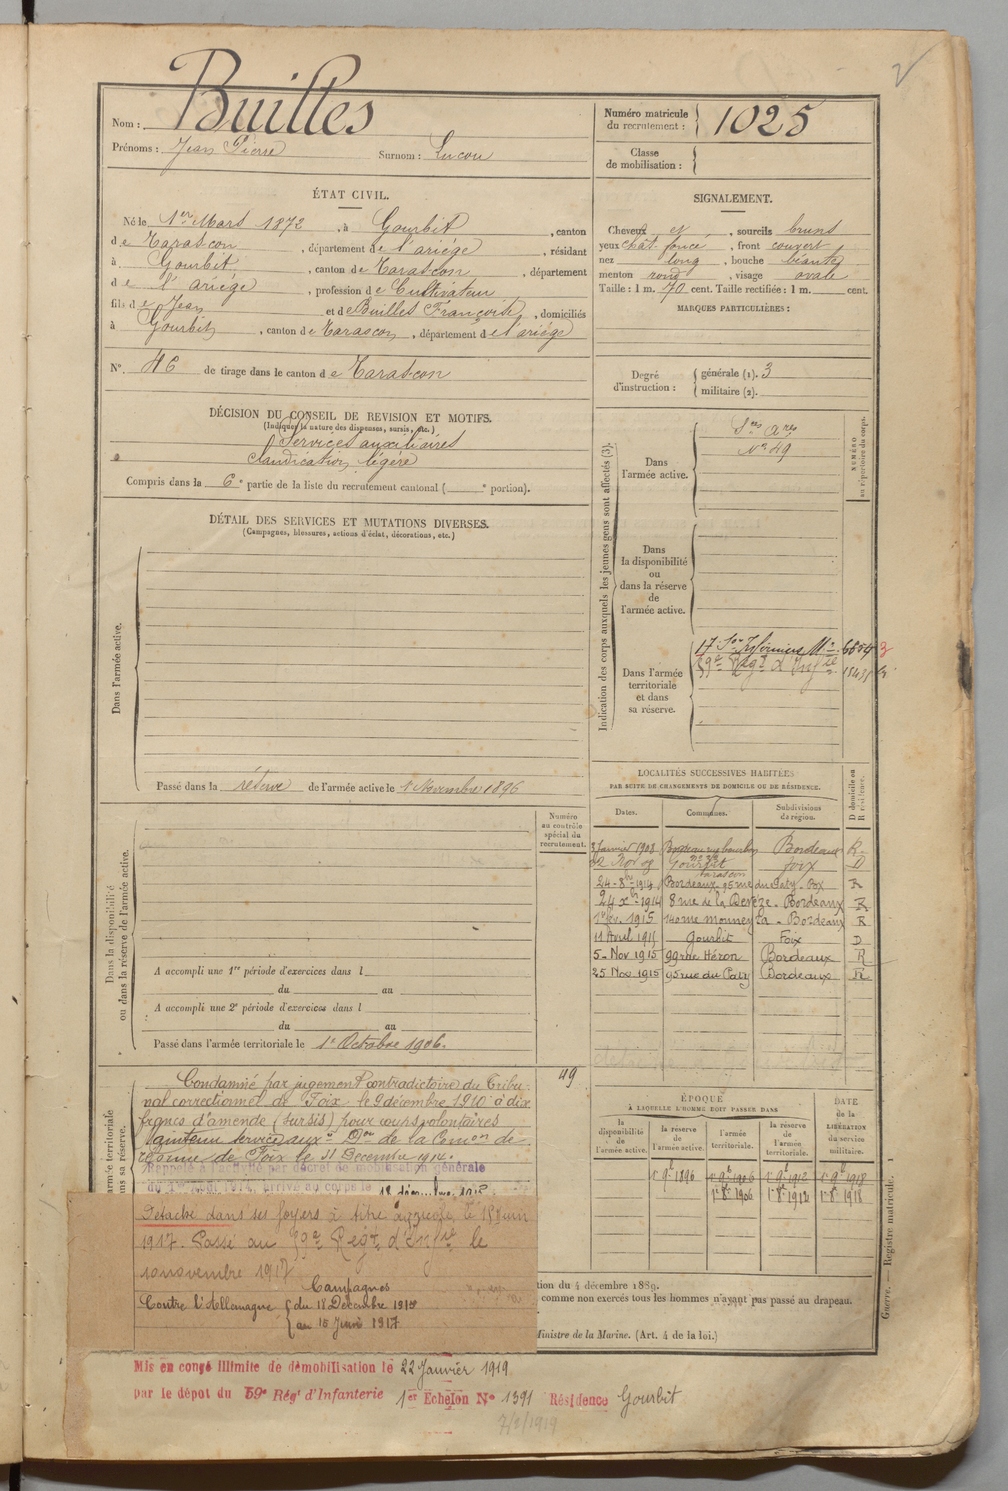 2
Nom : Builles
Prénoms : Jean Pierre Surnom : Lucou
Numéro matricule du recrutement : 1025
Classe de mobilisation :
ÉTAT CIVIL.
Né le 1er Mars 1872, à Gourbit, canton
de Tarascon, département de l'ariége, résidant
à Gourbit, canton de Tarascon, département
de l'ariége, profession de Cultivateur
fils de Jean et de Builles Françoise, domiciliés
à Gourbit, canton de Tarascon, département de l'ariége
N°. 46 de tirage dans le canton de Tarascon
SIGNALEMENT.
Cheveux et, sourcils bruns
yeux chât. foncé, front couvert
nez long, bouche béante
menton rond, visage ovale
Taille : 1 m. 70 cent. Taille rectifiée : 1 m. cent.
MARQUES PARTICULIÈRES :
Degré d'instruction : générale (1). 3
militaire (2).
DÉCISION DU CONSEIL DE REVISION ET MOTIFS.
(Indiquer la nature des dispenses, sursis, etc.)
Services auxiliaires
claudication légère
Compris dans la 6e partie de la liste du recrutement cantonal ( e portion).
DÉTAIL DES SERVICES ET MUTATIONS DIVERSES.
(Campagnes, blessures, actions d'éclat, décorations, etc.)
Dans l'armée active.
Passé dans la réserve de l'armée active le 1 Novembre 1896
Indication des corps auxquels les jeunes gens sont affectés (3).
NUMÉRO au répertoire du corps.
Dans l'armée active.
Sces Ares
No 49
Dans la disponibilité ou dans la réserve de l'armée active.
Dans l'armée territoriale et dans sa réserve.
17e Son
59e Regt d'Infie
LOCALITÉS SUCCESSIVES HABITÉES
PAR SUITE DE CHANGEMENTS DE DOMICILE OU DE RÉSIDENCE.
Dates. Communes. Subdivisions de région. D domicile ou R résidence.
3 Janvier 1908 Bordeaux rue Bourbon Bordeaux R
22 Nov 08 Gourbit Foix D
Tarascon
24-8-1914 Bordeaux 95 rue du Paty - Bx R
24 Xbre 1914 8 rue de la Devèze - Bordeaux R
1e fév. 1915 140 rue Monneyra - Bordeaux R
11 Avril 1915 Gourbit Foix D
5 - Nov 1915 99 rue Héron Bordeaux R
25 Nov 1915 95 rue du Paty Bordeaux R
Dans la disponibilité ou dans la réserve de l'armée active.
Numéro au contrôle spécial du recrutement.
A accompli une 1re période d'exercices dans l
du au
A accompli une 2e période d'exercices dans l
du au
Passé dans l'armée territoriale le 1er Octobre 1906.
49
armée territoriale
ns sa réserve.
Condamné par jugement contradictoire du Tribu-
nal correctionnel de Foix le 9 décembre 1910 à dix
francs d'amende (sursis) pour coups volontaires
Maintenu service auxre Don de la Comon de
réforme de Foix le 31 Décembre 1914.
Rappelé à l'activité par décret de mobilisation générale
du 1er Août 1914, arrivé au corps le 18 décembre 1915
Détaché dans ses foyers à titre agricole le 15 juin
1917. Passé au 59e Regt d'Infie le
10 novembre 1917
Campagnes
Contre l'Allemagne du 18 Décembre 1915
au 15 Juin 1917
ÉPOQUE
À LAQUELLE L'HOMME DOIT PASSER DANS
la disponibilité de l'armée active. la réserve de l'armée active. l'armée territoriale. la réserve de l'armée territoriale. DATE de la LIBÉRATION du service militaire.
1er 9b 1896 1er 9b 1906 1er 9b 1912 1er 9b 1918
1er 8b 1906 1er 8b 1912 1er 8b 1918
tion du 4 décembre 1889.
comme non exercés tous les hommes n'ayant pas passé au drapeau.
Ministre de la Marine. (Art. 4 de la loi.)
Guerre. — Registre matricule. 1
Mis en congé illimité de démobilisation le 22 Janvier 1919
par le dépot du 59e Rég' d'Infanterie 1er Echelon N° 1391 Résidence Gourbit
7/2/1919